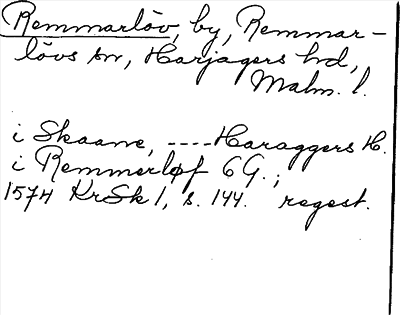 Remmarlöv, by, Remmar-
lövs sn, Harjagers hd,
Malm. l.
i Skaane, ---- Haraggers H.
i Remmerløf 6 G.;
1574 KrSk 1, s. 144. regest.